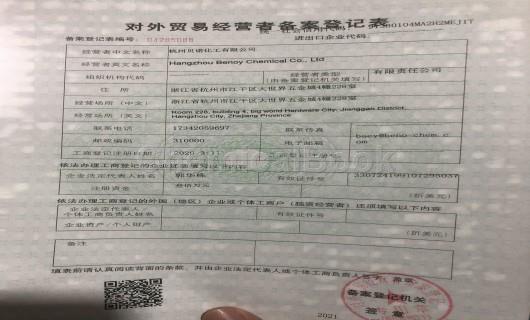 对外贸易经营者备案登记表
备案登记表编号:
进出口企业代码:
经营者中文名称 杭州贝诺化工有限公司
经营者英文名称 Hangzhou Benoy Chemical Co., Ltd
组织机构代码 经营者类型 (由备案登记机关填写) 有限责任公司
住 所 浙江省杭州市江干区大世界五金城4幢228室
经营场所(中文) 浙江省杭州市江干区大世界五金城4幢228室
经营场所(英文) Room 228, building 4, big world Hardware City, Jianggan District, Hangzhou City, Zhejiang Province
联系电话 联系传真
邮政编码 310000 电子邮箱
工商登记注册日期
依法办理工商登记的企业还须填写以下内容
企业法定代表人姓名 有效证件号
注册资金 (折美元)
依法办理工商登记的外国(地区)企业或个体工商户(独资经营者)还须填写以下内容
企业法定代表人/个体工商负责人姓名 有效证件号
企业资产/个人财产 (折美元)
备注
填表前请认真阅读背面的条款,并由企业法定代表人或个体工商负责人签字、盖章。
备案登记机关
签 章
2021